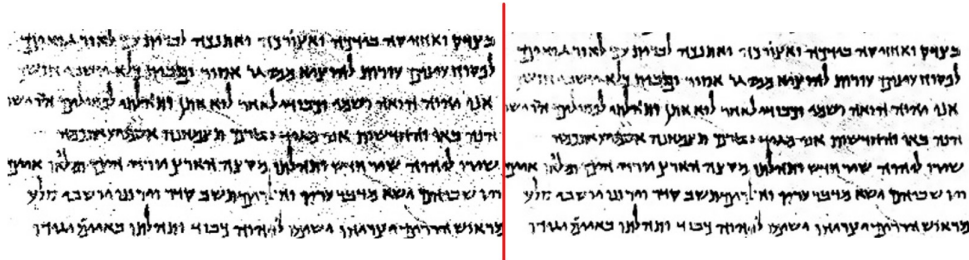 בצדק ואחזיקה בידכה ואצורכה ואתנכה לברית עם לאור גואים
לפקוח עינים עורות להוציא ממסגר אסיר ומבית כלא יושבי חושך
אני יהוה הואה ושמי וכבודי לאחר לוא אתן ותהלתי לפסילים
הנה באו וחדשות אני מגיד בטרם תצמחנה אשמיע אתכמה
שירו ליהוה שיר חדש ותהלתו מקצה הארץ יורדי הים ומלואו איים
ויושביהם ישא מדבר עריו תשב קדר וירונו יושבי סלע
מראש הרים ישימו ליהוה כבוד ותהלתו באיים יגידו
בצדק ואחזיקה בידכה ואצורכה ואתנכה לברית עם לאור גואים
לפקוח עינים עורות להוציא ממסגר אסיר ומבית כלא יושבי חושך
אני יהוה הואה ושמי וכבודי לאחר לוא אתן ותהלתי לפסילים
הנה באו וחדשות אני מגיד בטרם תצמחנה אשמיע אתכמה
שירו ליהוה שיר חדש ותהלתו מקצה הארץ יורדי הים ומלואו איים
ויושביהם ישא מדבר עריו תשב קדר וירונו יושבי סלע
מראש הרים ישימו ליהוה כבוד ותהלתו באיים יגידו